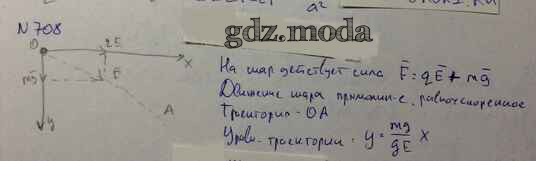 N 708
gdz.moda
O qE x
mg F
A
y
На шар действует сила F̄ = qĒ + mḡ
Движение шара прямолин-е, равноускоренное
Траектория - OA
Уравн. траектории: y = mg/qE x